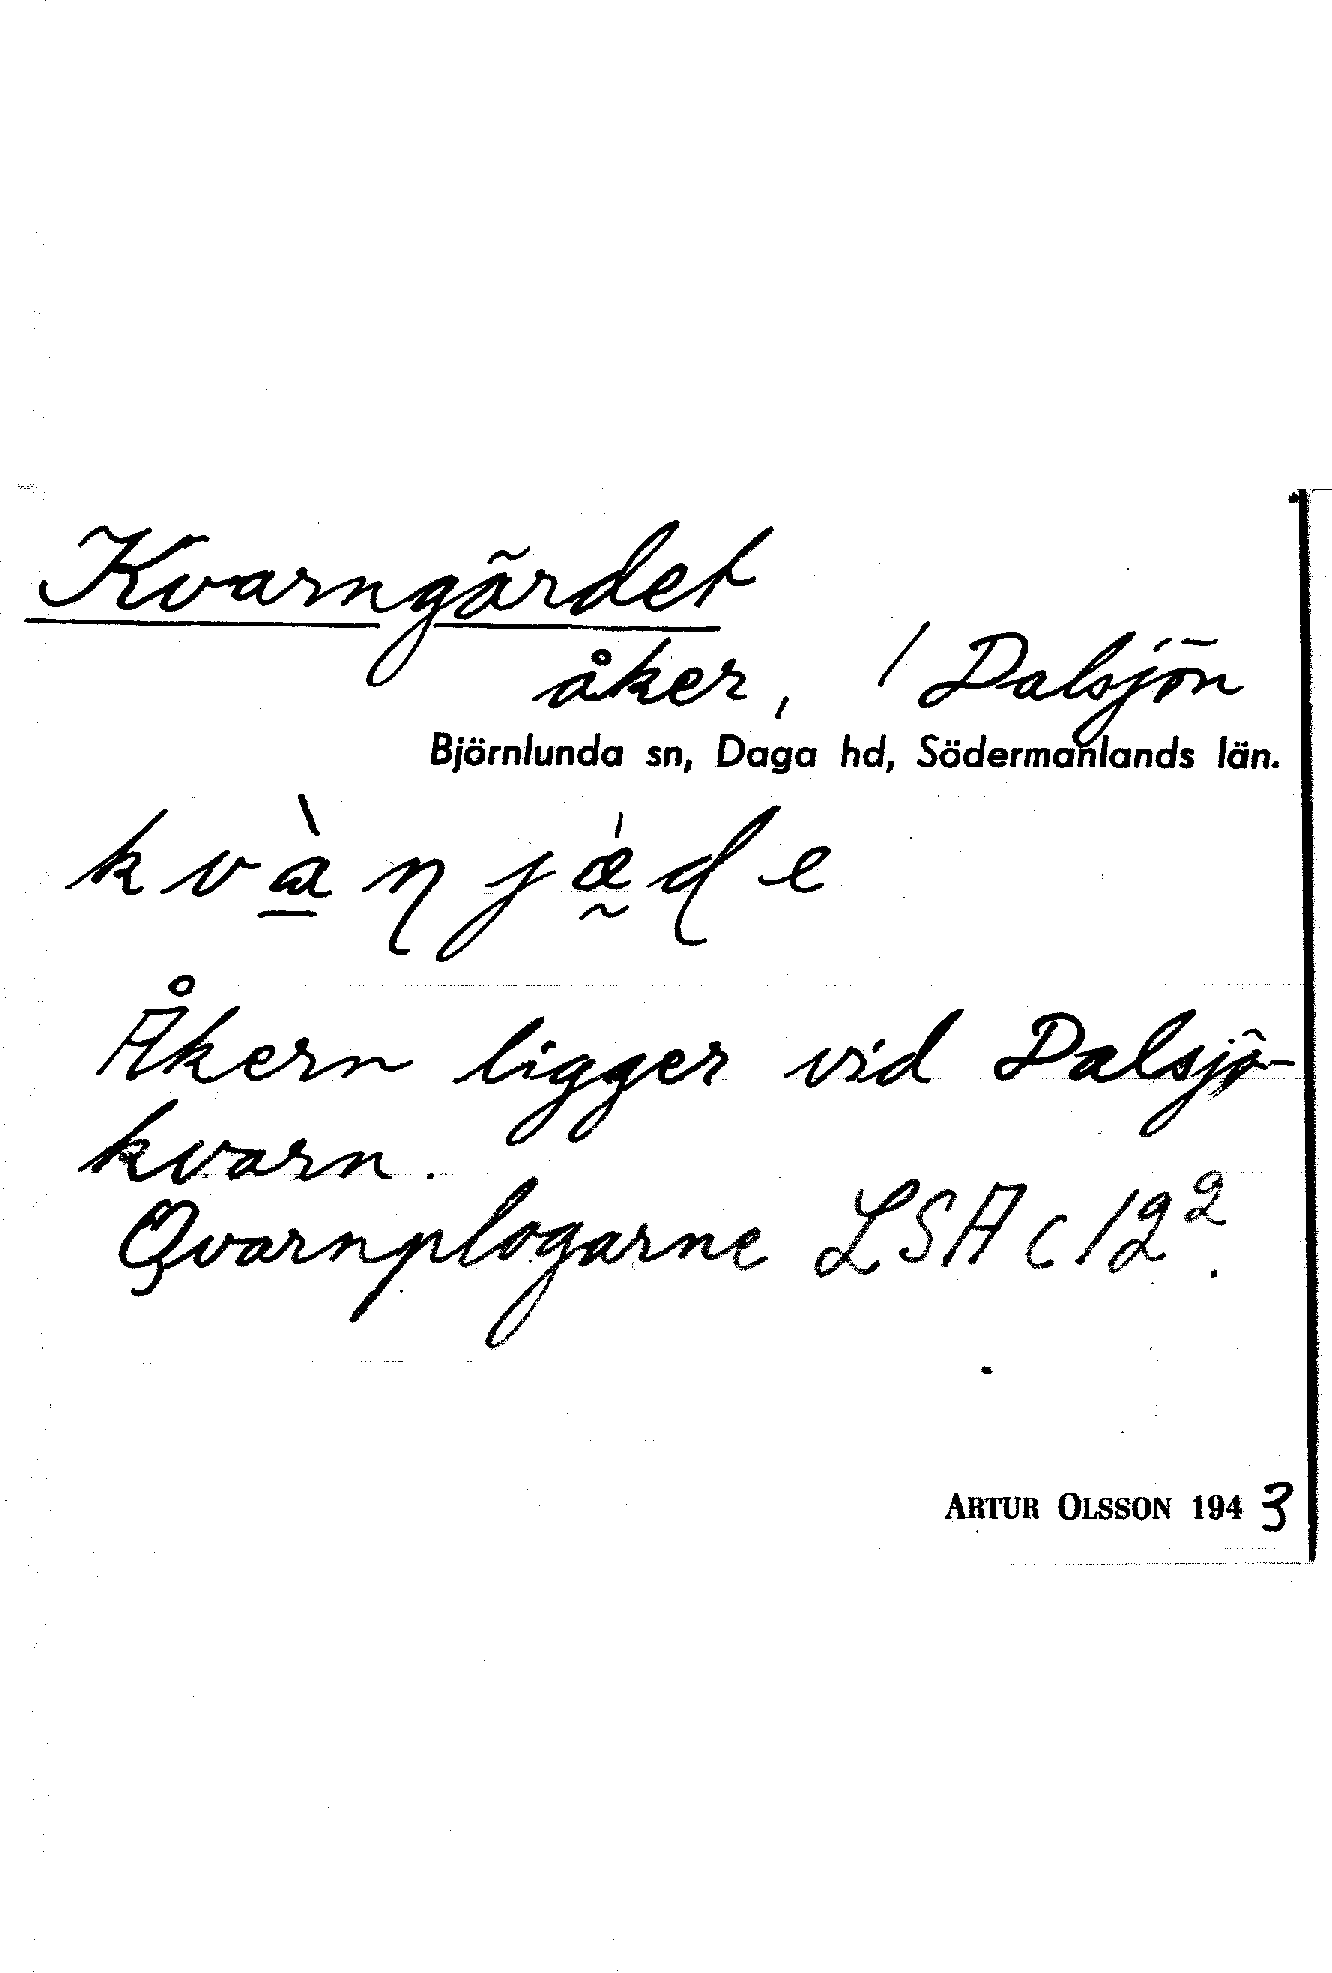 Kvarngärdet
åker, / Dalsjön
Björnlunda sn, Daga hd, Södermanlands län.
kvàɳjǽɖe
Åkern ligger vid Dalsjö-
kvarn.
Qvarnplogarne LSA C 12².
ARTUR OLSSON 1943